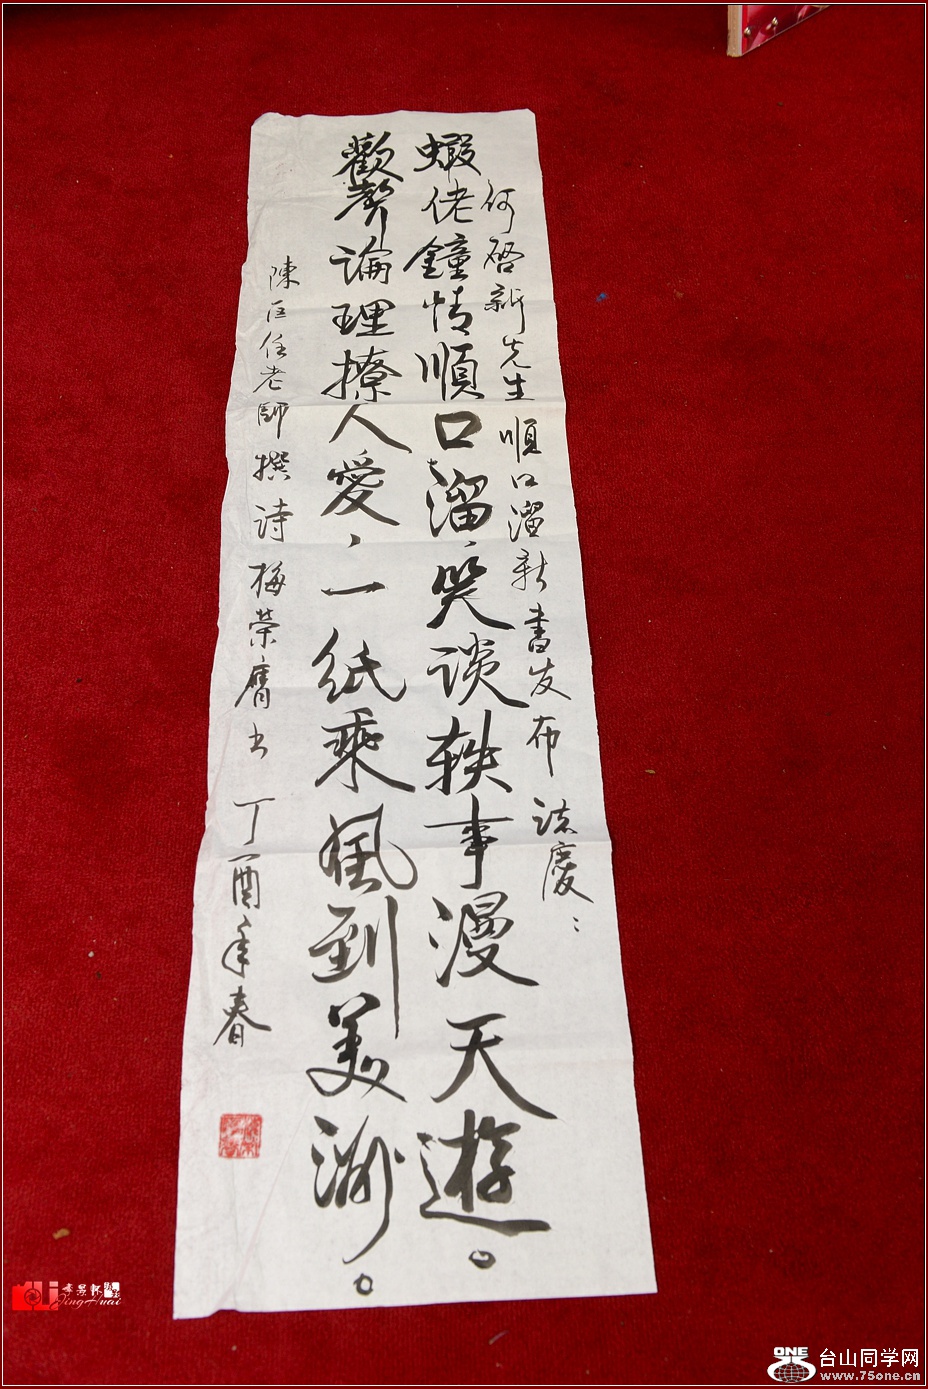 何啓新先生順口溜新書发布誌慶：
蝦佬鐘情順口溜，笑談軼事漫天遊。
歡聲論理撩人愛，一紙乘風到美洲。
陳匡任老師撰詩 梅荣膺书 丁酉年春
JingHuai
ONE
台山同学网
www.75one.cn